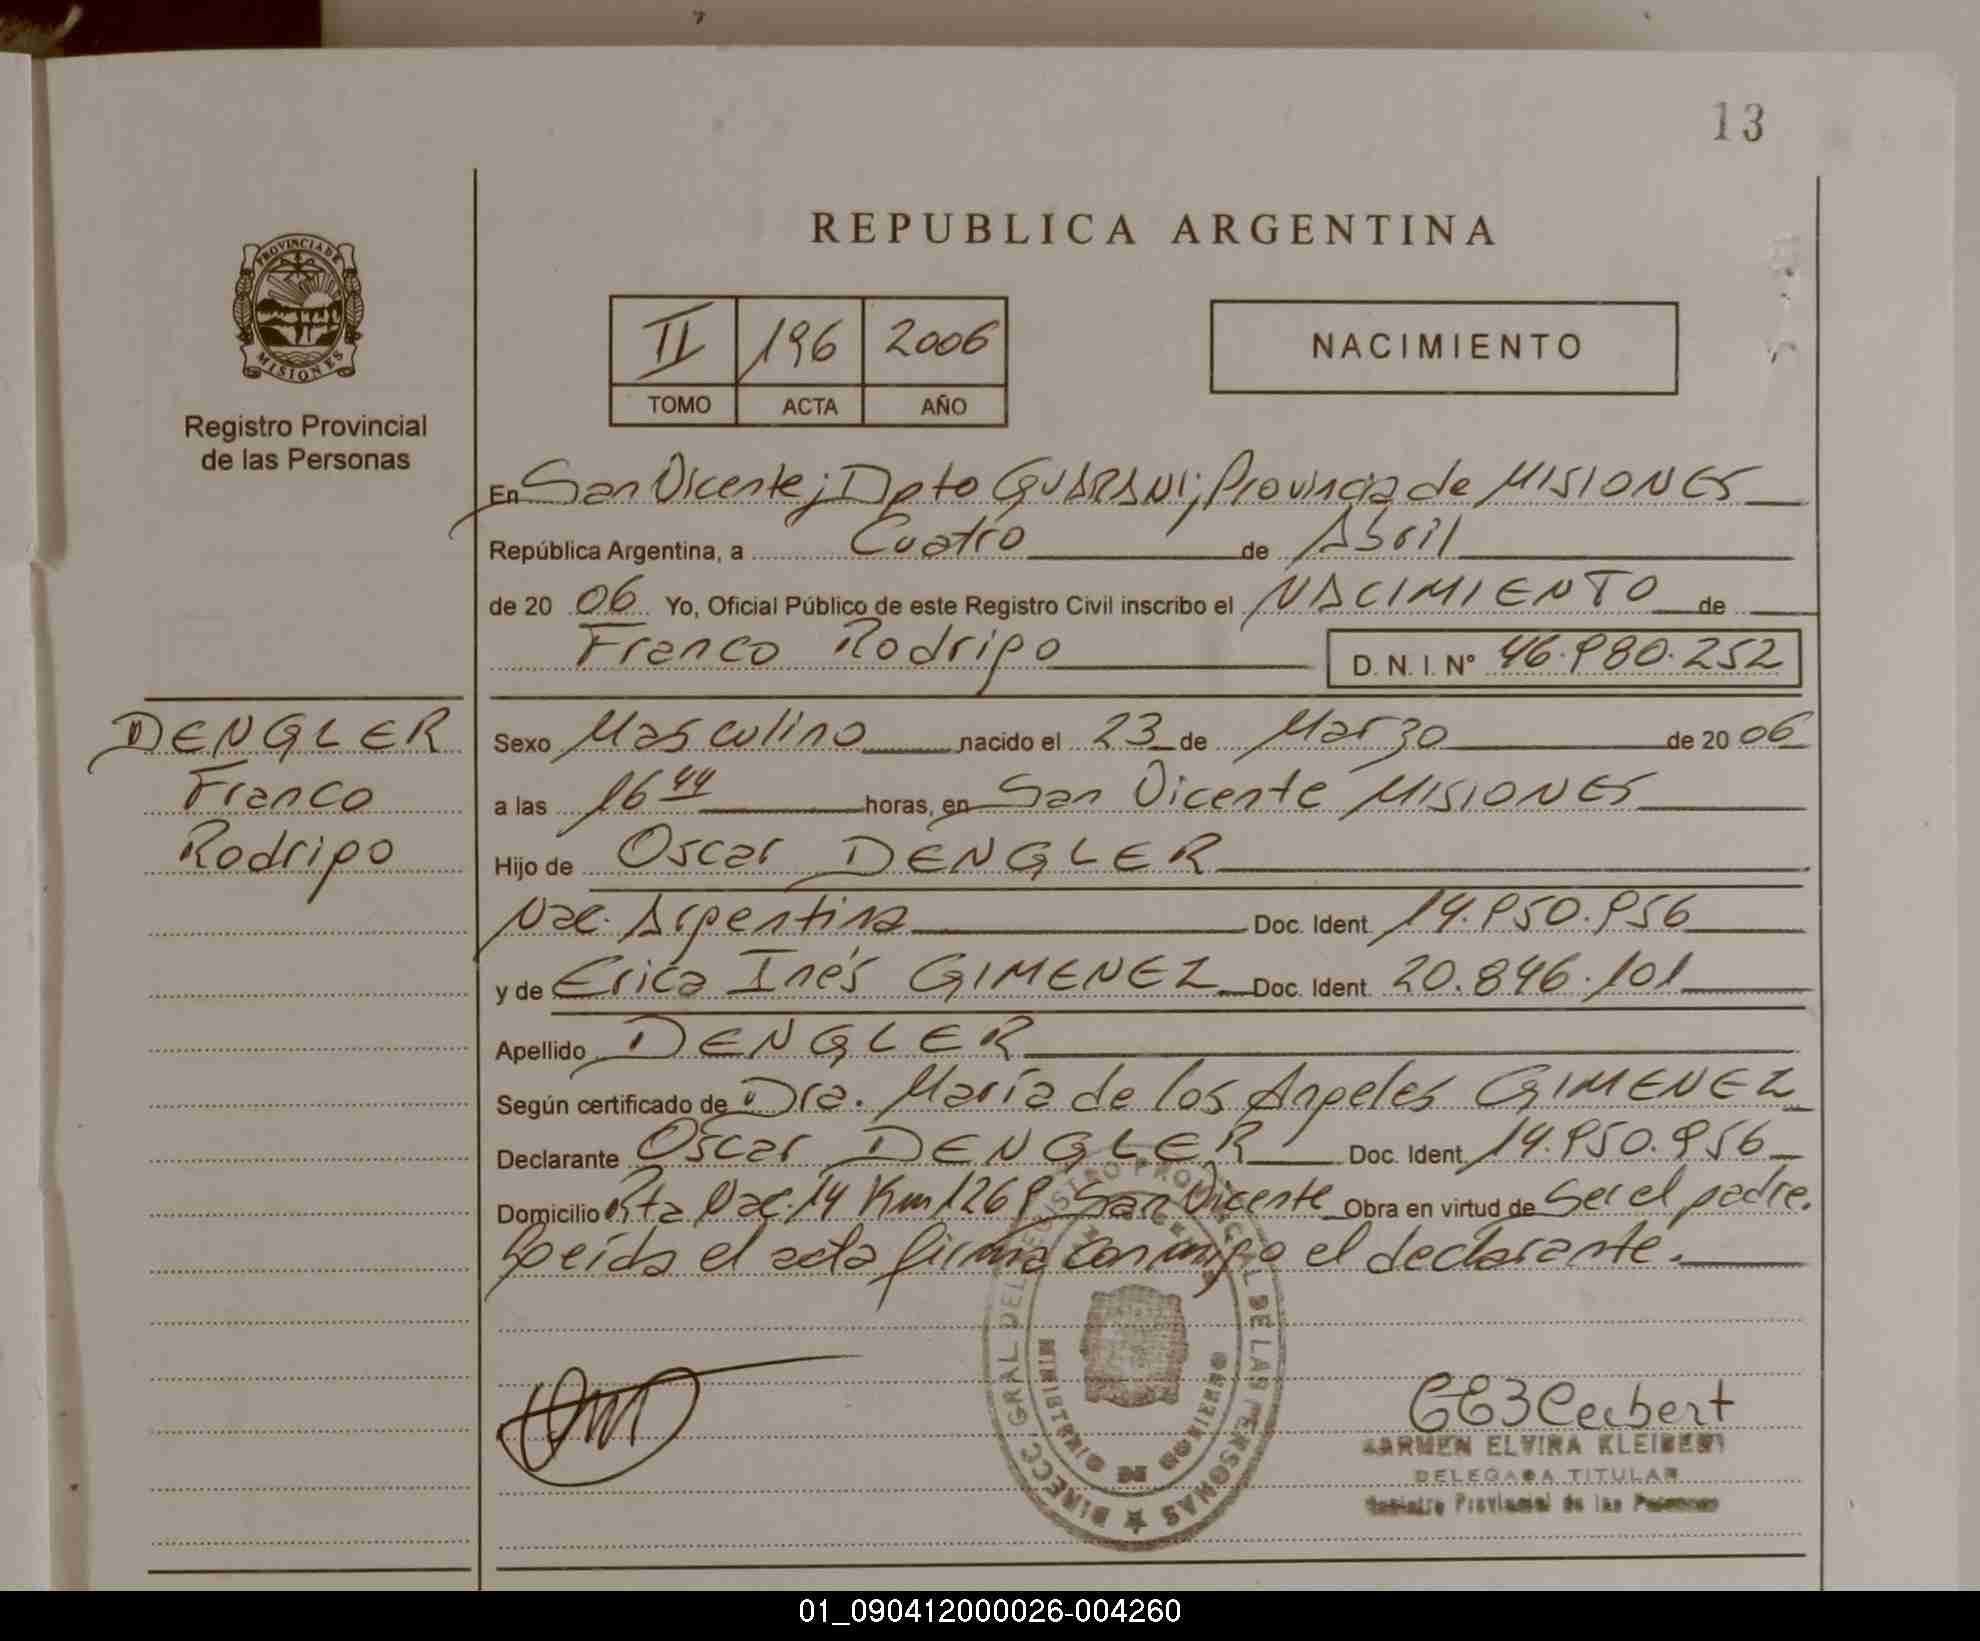 13
REPUBLICA ARGENTINA
PROVINCIA DE
MISIONES
Registro Provincial
de las Personas
II 196 2006
TOMO ACTA AÑO
NACIMIENTO
En San Vicente; Dpto GUARANI; Provincia de MISIONES
República Argentina, a Cuatro de Abril
de 20 06 Yo, Oficial Público de este Registro Civil inscribo el NACIMIENTO de
Franco Rodrigo D. N. I. N° 46.980.252
DENGLER
Franco
Rodrigo
Sexo Masculino nacido el 23 de Marzo de 20 06
a las 16 44 horas, en San Vicente MISIONES
Hijo de Oscar DENGLER
Nac. Argentina Doc. Ident. 14.950.956
y de Erica Inés GIMENEZ Doc. Ident. 20.846.101
Apellido DENGLER
Según certificado de Dra. María de los Angeles GIMENEZ
Declarante Oscar DENGLER Doc. Ident. 14.950.956
Domicilio Rta Nac. 14 Km 1269 San Vicente Obra en virtud de Ser el padre.
Leída el acta firma conmigo el declarante.
DIRECC. GRAL DEL REGISTRO PROVINCIAL DE LAS PERSONAS
MINISTERIO DE GOBIERNO
CARMEN ELVIRA KLEIBERT
DELEGADA TITULAR
Registro Provincial de las Personas
01_090412000026-004260